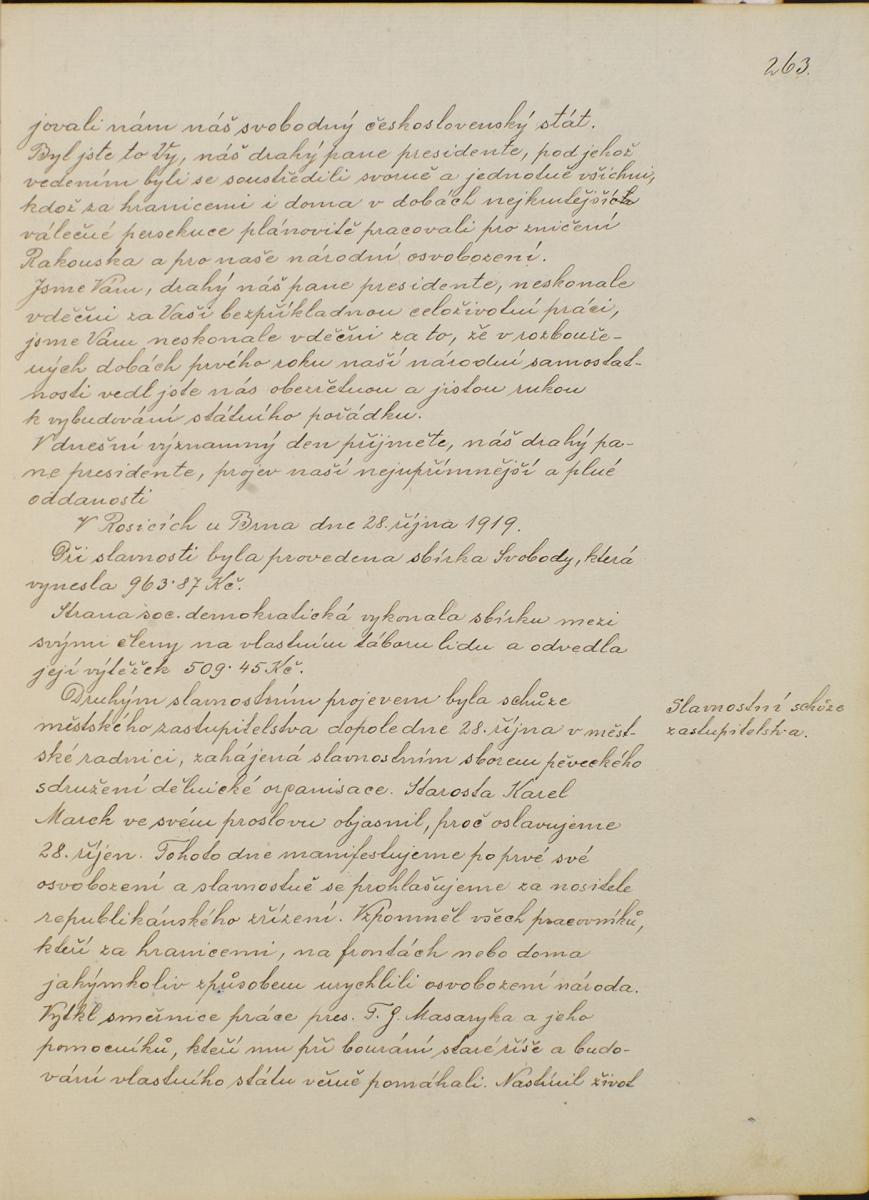 263.
jovali nám náš svobodný československý stát.
Byl jste to Vy, náš drahý pane presidente, pod jehož
vedením byli se soustředili svorně a jednotně všichni,
kdož za hranicemi i doma v dobách nejkrutějších
válečné persekuce plánovitě pracovali pro zničení
Rakouska a pro naše národní osvobození.
Jsme Vám, drahý náš pane presidente, neskonale
vděčni za Vaši bezpříkladnou celoživotní práci,
jsme Vám neskonale vděčni za to, že v rozbouře-
ných dobách prvého roku naší národní samostat-
nosti vedl jste nás obezřetnou a jistou rukou
k vybudování státního pořádku.
V dnešní významný den přijměte, náš drahý pa-
ne presidente, projev naší nejupřímnější a plné
oddanosti
V Rosicích u Brna dne 28. října 1919.
Při slavnosti byla provedena sbírka Svobody, která
vynesla 963·87 Kč.
Strana soc. demokratická vykonala sbírku mezi
svými členy na vlastním táboru lidu a odvedla
její výtěžek 509·45 Kč.
Druhým slavnostním projevem byla schůze
městského zastupitelstva dopoledne 28. října v měst-
ské radnici, zahájená slavnostním sborem pěveckého
sdružení dělnické organisace. Starosta Karel
March ve svém proslovu objasnil, proč oslavujeme
28. říjen. Tohoto dne manifestujeme po prvé své
osvobození a slavnostně se prohlašujeme za nositele
republikánského zřízení. Vzpomněl všech pracovníků,
kteří za hranicemi, na frontách nebo doma
jakýmkoliv způsobem urychlili osvobození národa.
Vytkl směrnice práce pres. T. G. Masaryka a jeho
pomocníků, kteří mu při bourání staré říše a budo-
vání vlastního státu věrně pomáhali. Nastínil život
Slavnostní schůze
zastupitelstva.